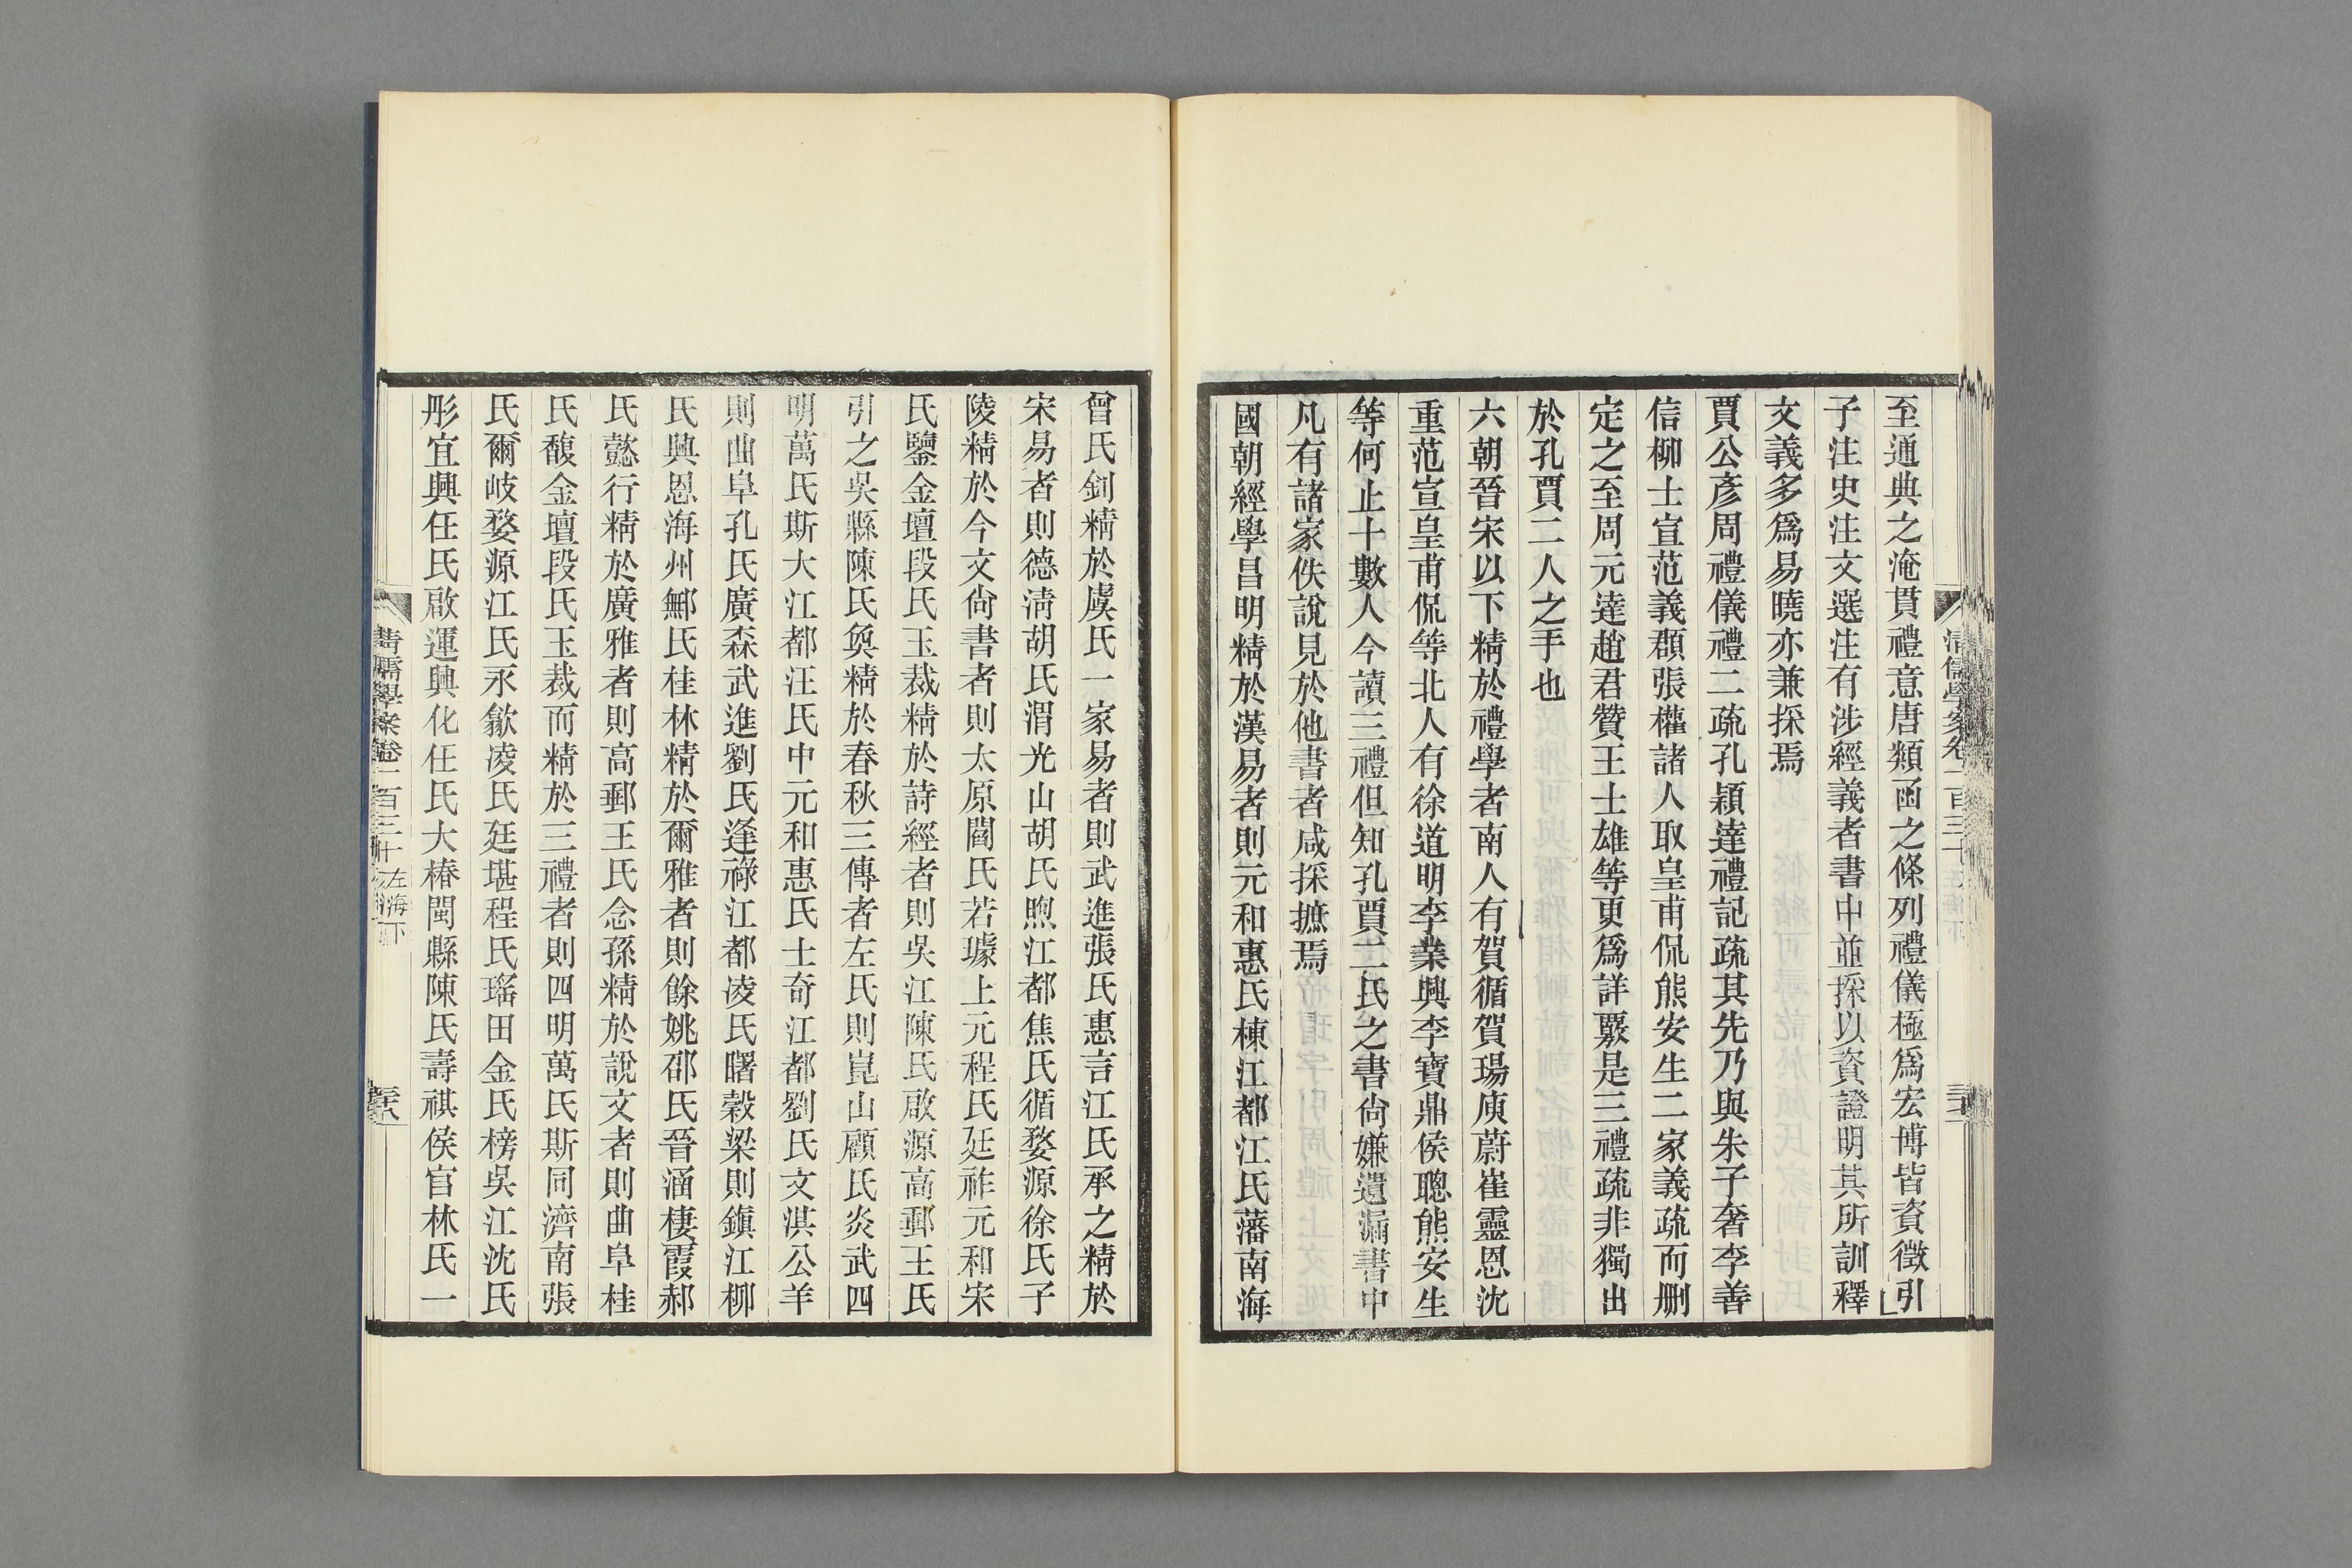 至通典之淹貫禮意唐類函之條列禮儀極爲宏博皆資徵引
子注史注文選注有涉經義者書中並採以資證明其所訓釋
文義多爲易曉亦兼採焉
賈公彥周禮儀禮二疏孔穎達禮記疏其先乃與朱子奢李善
信柳士宣范義頵張權諸人取皇甫侃熊安生二家義疏而刪
定之至周元達趙君贊王士雄等更爲詳覈是三禮疏非獨出
於孔賈二人之手也
六朝晉宋以下精於禮學者南人有賀循賀瑒庾蔚崔靈恩沈
重范宣皇甫侃等北人有徐道明李業興李寶鼎侯聰熊安生
等何止十數人今讀三禮但知孔賈二氏之書尙嫌遺漏書中
凡有諸家佚說見於他書者咸採摭焉
國朝經學昌明精於漢易者則元和惠氏棟江都江氏藩南海
曾氏釗精於虞氏一家易者則武進張氏惠言江氏承之精於
宋易者則德淸胡氏渭光山胡氏煦江都焦氏循婺源徐氏子
陵精於今文尙書者則太原閻氏若璩上元程氏廷祚元和宋
氏鑒金壇段氏玉裁精於詩經者則吳江陳氏啟源高郵王氏
引之吳縣陳氏奐精於春秋三傳者左氏則崑山顧氏炎武四
明萬氏斯大江都汪氏中元和惠氏士奇江都劉氏文淇公羊
則曲阜孔氏廣森武進劉氏逢祿江都凌氏曙穀梁則鎭江柳
氏興恩海州鄦氏桂林精於爾雅者則餘姚邵氏晉涵棲霞郝
氏懿行精於廣雅者則高郵王氏念孫精於說文者則曲阜桂
氏馥金壇段氏玉裁而精於三禮者則四明萬氏斯同濟南張
氏爾岐婺源江氏永歙凌氏廷堪程氏瑤田金氏榜吳江沈氏
彤宜興任氏啟運興化任氏大椿閩縣陳氏壽祺侯官林氏一
清儒學案卷一百三十 左海下